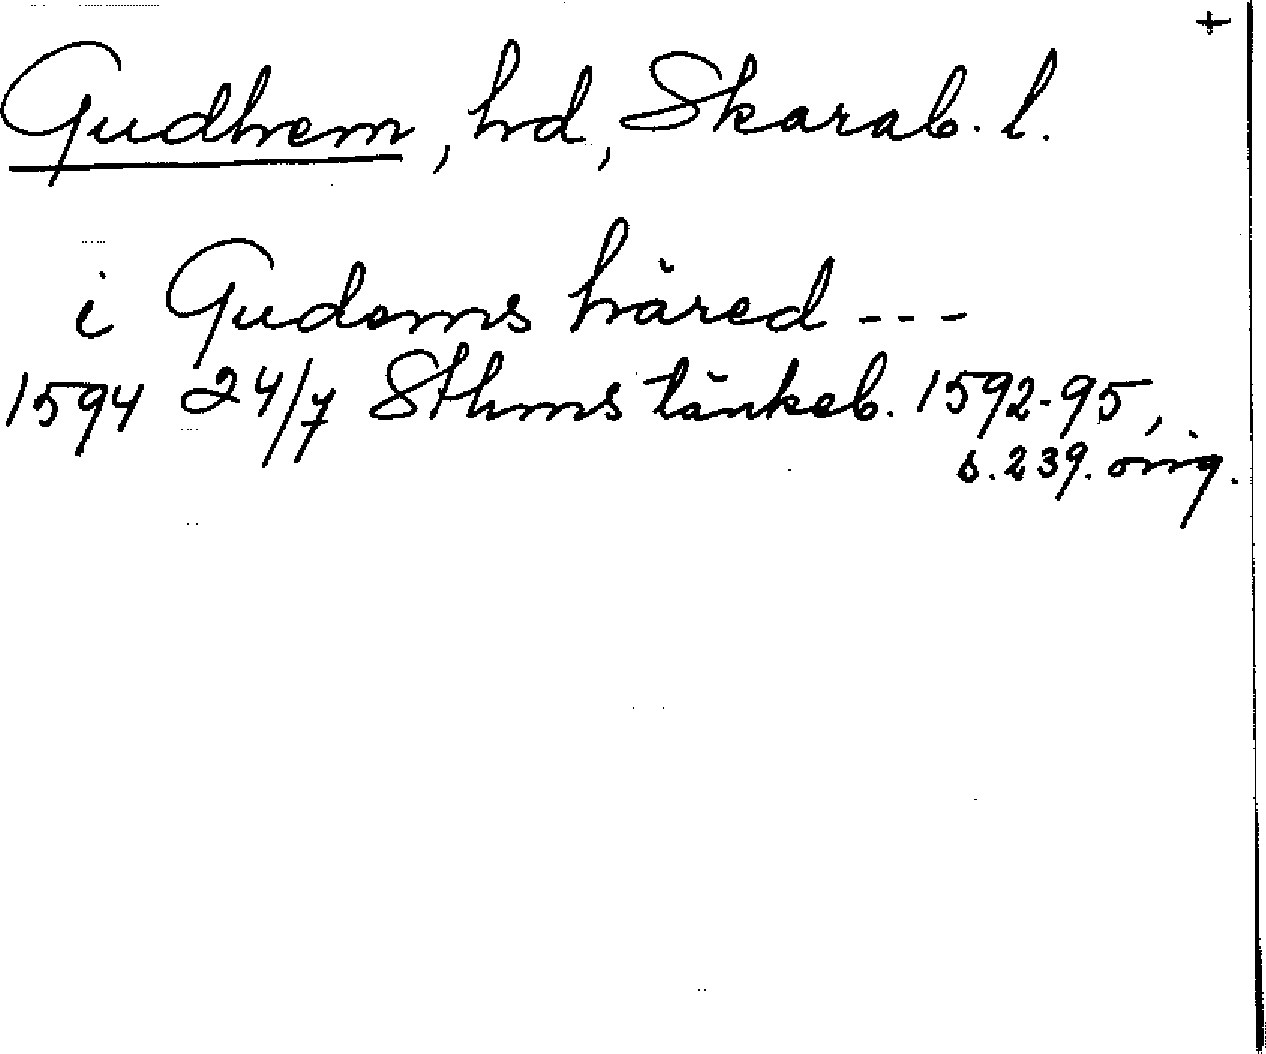 +
Gudhem, hd, Skarab. l.
i Gudems häred ---
1594 24/7 Sthms tänkeb. 1592-95,
s. 239. orig.